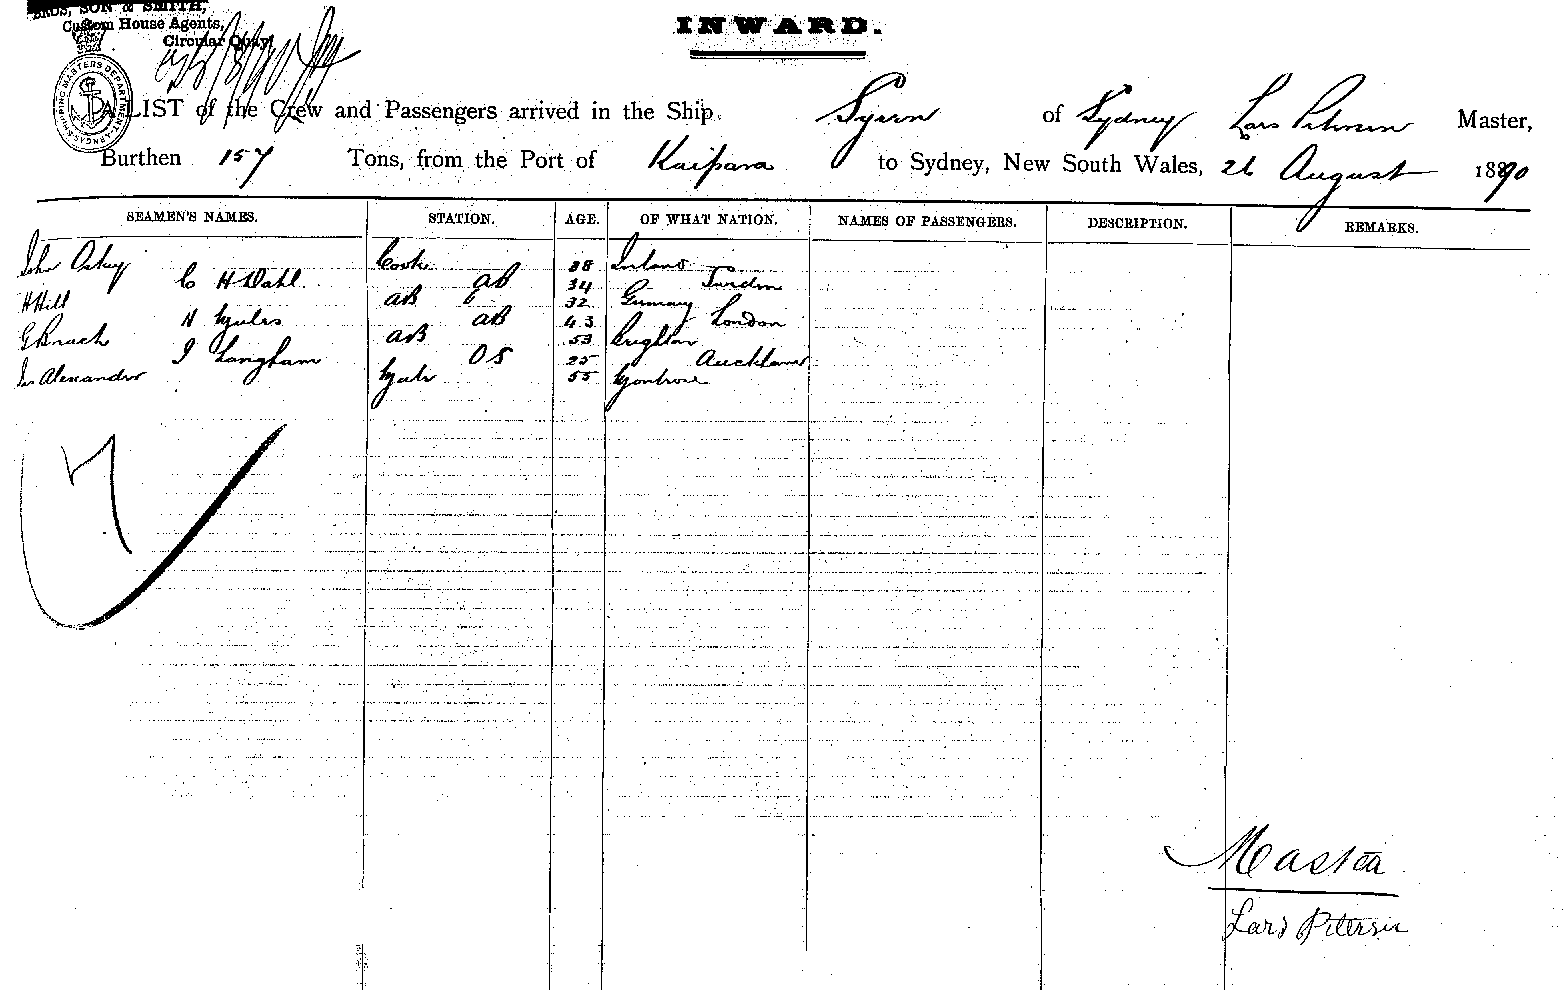 BROS, SON & SMITH,
Custom House Agents,
Circular Quay
INWARD.
SHIPPING MASTERS DEPARTMENT
A LIST of the Crew and Passengers arrived in the Ship of Sydney Lars Petersen Master,
Burthen 157 Tons, from the Port of Kaipara to Sydney, New South Wales, 26 August 1890
SEAMEN'S NAMES. STATION. AGE. OF WHAT NATION. NAMES OF PASSENGERS. DESCRIPTION. REMARKS.
John Cook 38 Ireland
C H Dahl AB 34 Sweden
H Hill AB 32 Germany
H Myles AB 43 London
G Brnach AB 53 Brighton
J Langham OS 25 Auckland
Jas Alexander Mate 55 Montrose
7
Master
Lars Petersen